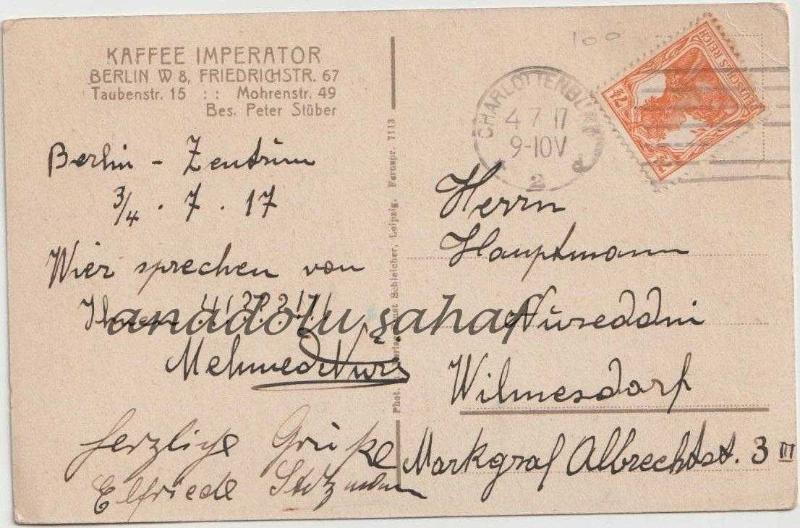 KAFFEE IMPERATOR
BERLIN W 8, FRIEDRICHSTR. 67
Taubenstr. 15 :: Mohrenstr. 49
Bes. Peter Stüber
Berlin - Zentrum
3/4 . 7 . 17
Wier sprechen von
Ihnen
Mehmed Nuri
herzliche Grüße
Elfriede
anadolu sahaf
Schleicher, Leipzig. Fernspr. 7113
100
CHARLOTTENBURG
4 7 17
9-10V
2
DEUTSCHES REICH
7½
7½
Herrn
Hauptmann
Nureddin
Wilmesdorf
Markgraf Albrechtst. 3 III